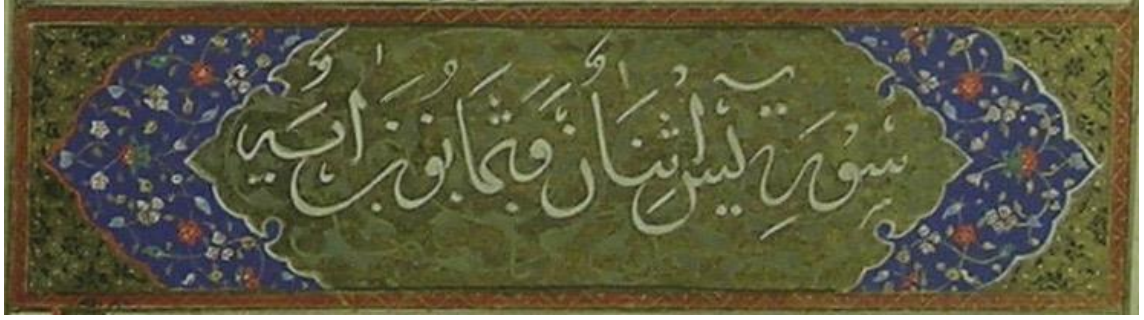 سُورَةِ يٰسٓ اثْنَانِ وَثَمَانُونَ اٰيَةً